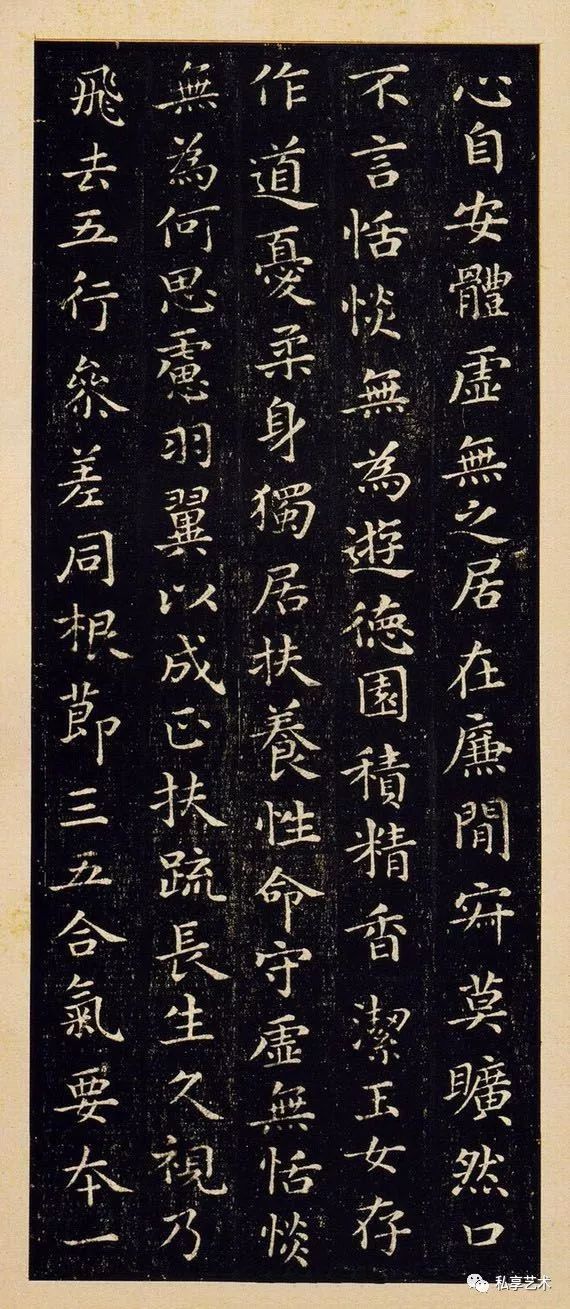 心自安體虛無之居在廉間𡧯莫曠然口
不言恬惔無為遊徳園積精香潔玉女存
作道憂柔身獨居扶養性命守虛無恬惔
無為何思慮羽翼以成正扶疏長生久視乃
飛去五行參差同根莭三五合氣要夲一
私享艺术